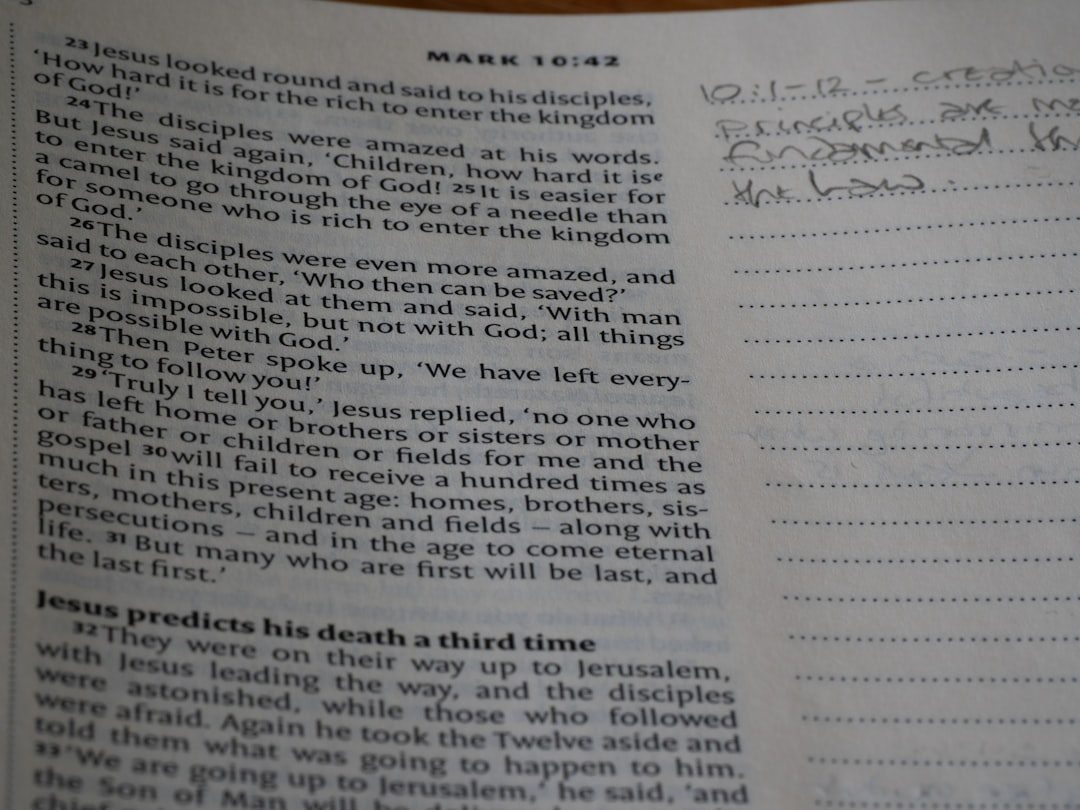 MARK 10:42
23 Jesus looked round and said to his disciples,
‘How hard it is for the rich to enter the kingdom
of God!’
24 The disciples were amazed at his words.
But Jesus said again, ‘Children, how hard it is e
to enter the kingdom of God! 25 It is easier for
a camel to go through the eye of a needle than
for someone who is rich to enter the kingdom
of God.’
26 The disciples were even more amazed, and
said to each other, ‘Who then can be saved?’
27 Jesus looked at them and said, ‘With man
this is impossible, but not with God; all things
are possible with God.’
28 Then Peter spoke up, ‘We have left every-
thing to follow you!’
29 ‘Truly I tell you,’ Jesus replied, ‘no one who
has left home or brothers or sisters or mother
or father or children or fields for me and the
gospel 30 will fail to receive a hundred times as
much in this present age: homes, brothers, sis-
ters, mothers, children and fields – along with
persecutions – and in the age to come eternal
life. 31 But many who are first will be last, and
the last first.’
Jesus predicts his death a third time
32 They were on their way up to Jerusalem,
with Jesus leading the way, and the disciples
were astonished, while those who followed
were afraid. Again he took the Twelve aside and
told them what was going to happen to him.
33 ‘We are going up to Jerusalem,’ he said, ‘and
the Son of Man will be
10:1-12 - creatio
principles are mo
fundamental th
the Law.